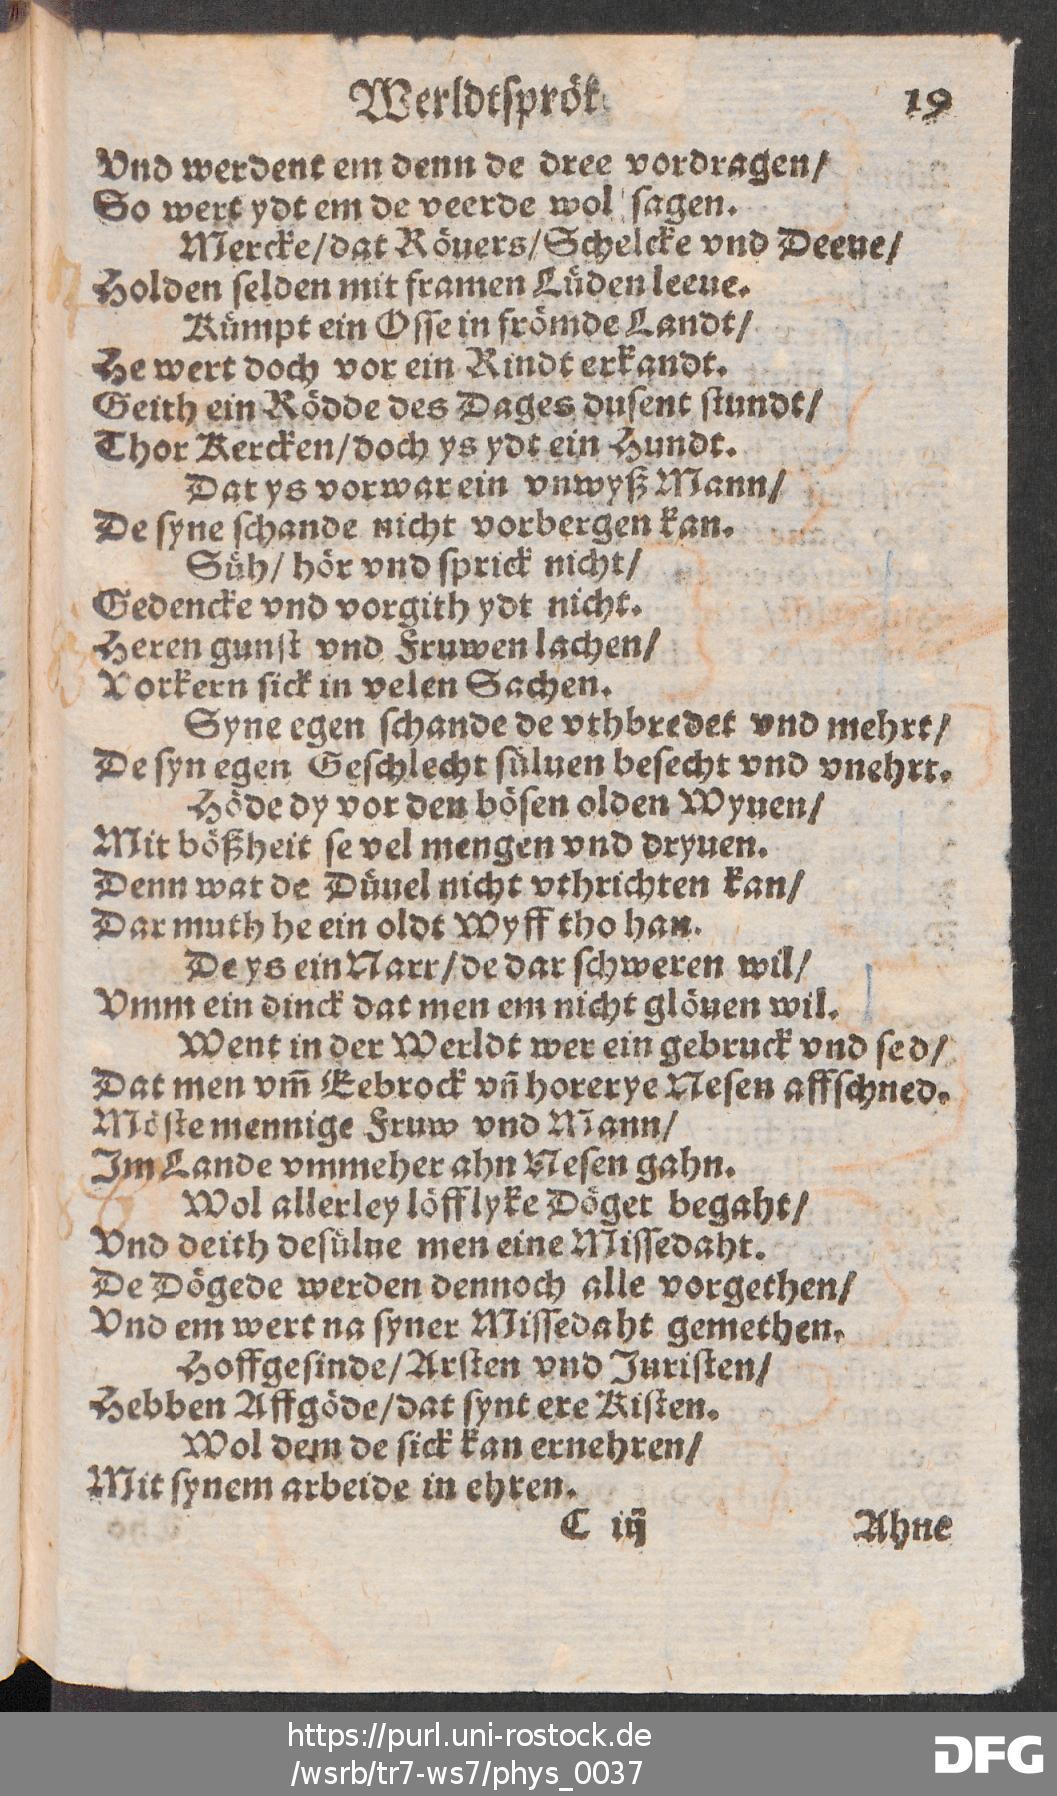 Werldtsprök
19
Vnd werdent em denn de dree vordragen/
So wert ydt em de veerde wol sagen.
Mercke/dat Röuers/Schelcke vnd Deeue/
Holden selden mit framen Lüden leeue.
Kümpt ein Osse in frömde Landt/
He wert doch vor ein Rindt erkandt.
Geith ein Rödde des Dages dusent stundt/
Thor Kercken/doch ys ydt ein Hundt.
Dat ys vorwar ein vnwyß Mann/
De syne schande nicht vorbergen kan.
Süh/ hör vnd sprick nicht/
Gedencke vnd vorgith ydt nicht.
Heren gunst vnd Fruwen lachen/
Vorkern sick in velen Sachen.
Syne egen schande de vthbredet vnd mehrt/
De syn egen Geschlecht süluen besecht vnd vnehrt.
Höde dy vor den bösen olden Wyuen/
Mit bößheit se vel mengen vnd dryuen.
Denn wat de Düuel nicht vthrichten kan/
Dar muth he ein oldt Wyff tho han.
De ys ein Narr/de dar schweren wil/
Vmm ein dinck dat men em nicht glöuen wil.
Went in der Werldt wer ein gebruck vnd sed/
Dat men vm̃ Eebrock vñ horerye Nesen affschned.
Möste mennige Fruw vnd Mann/
Im Lande vmmeher ahn Nesen gahn.
Wol allerley löfflyke Döget begaht/
Vnd deith desülue men eine Missedaht.
De Dögede werden dennoch alle vorgethen/
Vnd em wert na syner Missedaht gemethen.
Hoffgesinde/Arsten vnd Juristen/
Hebben Affgöde/dat synt ere Kisten.
Wol dem de sick kan ernehren/
Mit synem arbeide in ehren.
C iij
Ahne
https://purl.uni-rostock.de
/wsrb/tr7-ws7/phys_0037
DFG